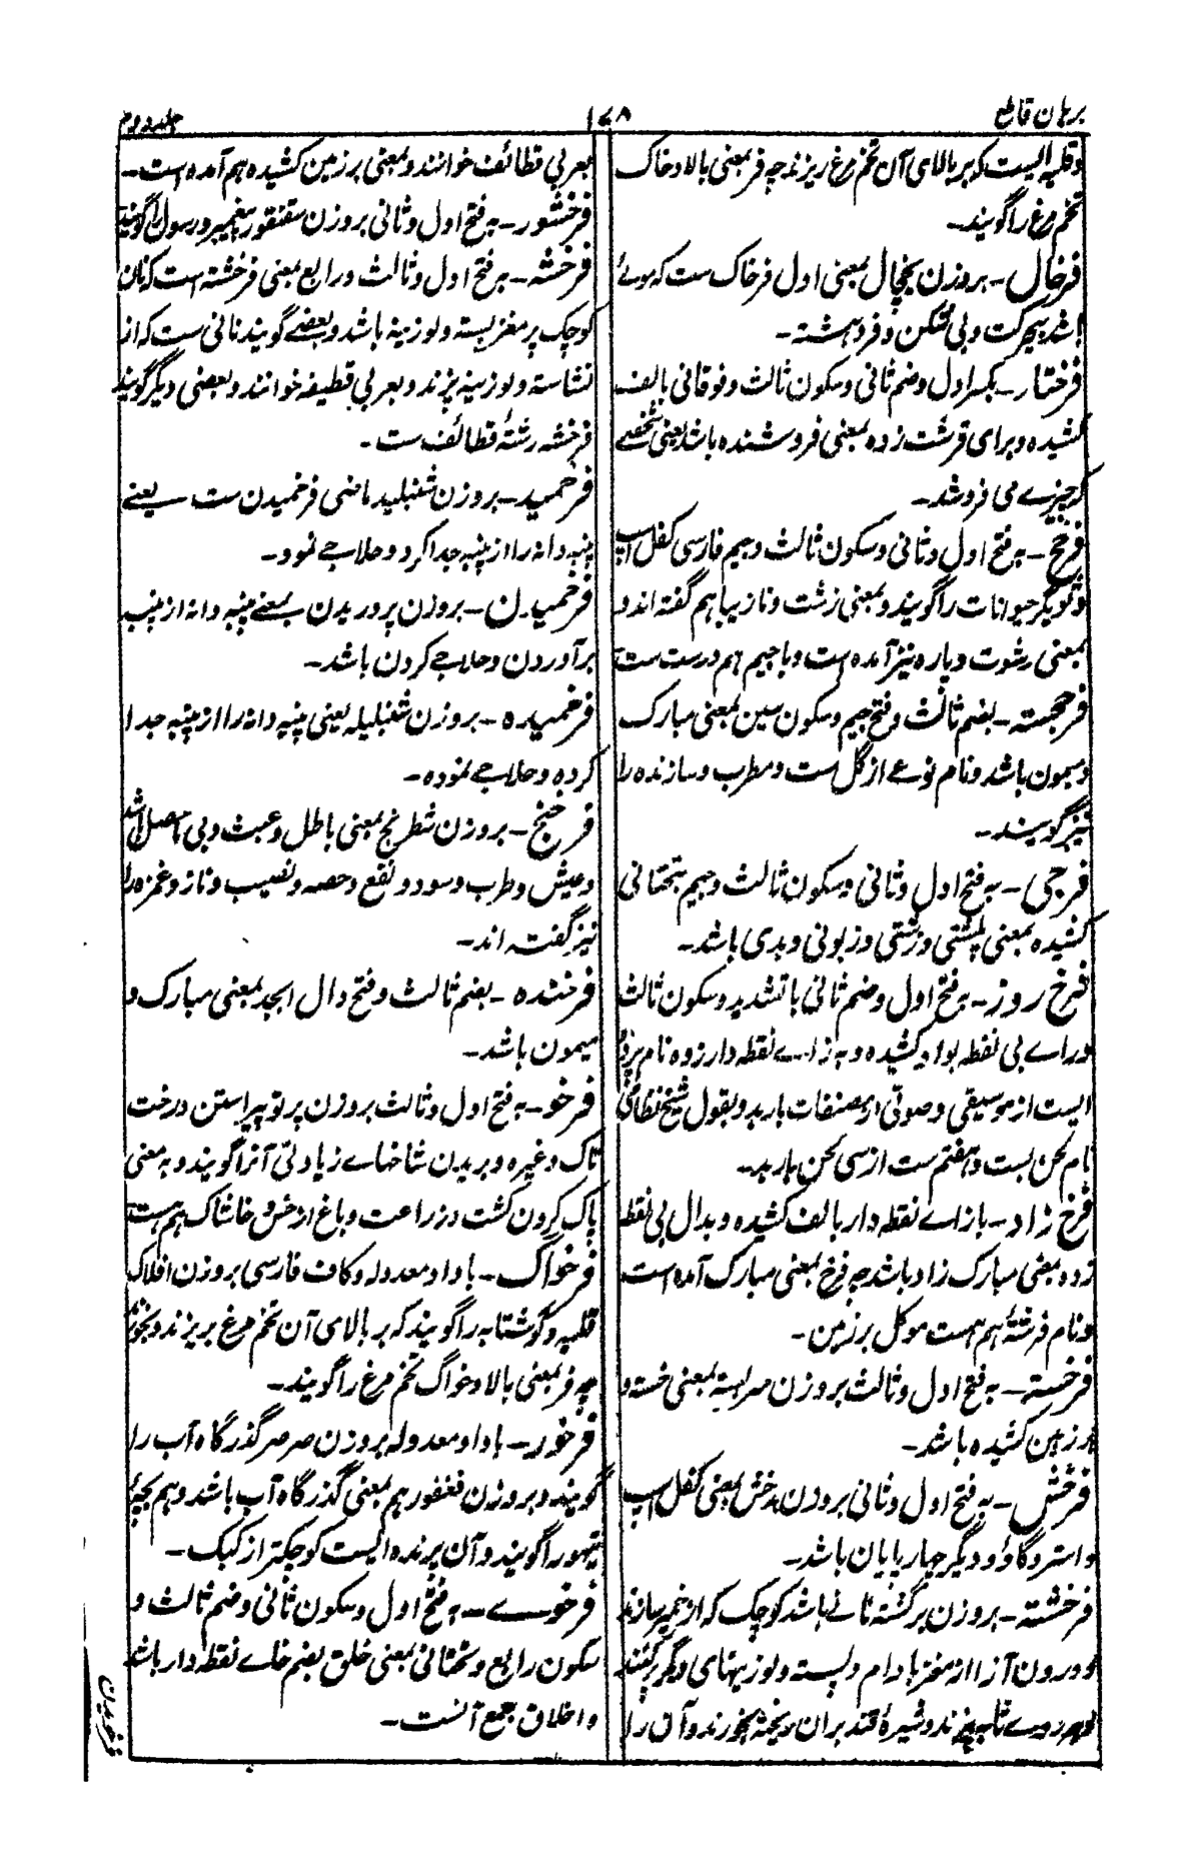 برهان قاطع
۱۷۸
جلد دوم
و قلیه ایست که بر بالای آن تخم مرغ ریزند چه فر بمعنی بالا و خاک
تخم مرغ را گویند۔
فرخال۔ بروزن یخچال بمعنی اول فرخاک ست که موئے
باشد بیحرکت و بی شکن و فروهشته۔
فرختار۔ بکسر اول و ضم ثانی و سکون ثالث و فوقانی بالف
کشیده و برای قرشت زده بمعنی فروشنده باشد یعنی شخصے
که چیزے می فروشد۔
فرخج۔ به فتح اول و ثانی و سکون ثالث و جیم فارسی کفل اسپ
و دیگر حیوانات را گویند و بمعنی زشت و نازیبا هم گفته اند و
بمعنی رشوت و پاره نیز آمده است و با جیم هم درست ست
فرخجسته۔ بضم ثالث و فتح جیم و سکون سین بمعنی مبارک
و میمون باشد و نام نوعے از گل ست و مطرب و سازنده را
نیز گویند۔
فرخجی۔ به فتح اول و ثانی و سکون ثالث و جیم بتحتانی
کشیده بمعنی پلشتی و زشتی و زبونی و بدی باشد۔
فرخ روز۔ به فتح اول و ضم ثانی با تشدید و سکون ثالث
و راے بی نقطه بواو کشیده و به زاے نقطه دار زده نام پرده
ایست از موسیقی و صوتی از مصنفات باربد و بقول شیخ نظامی
نام لحن بست و هفتم ست از سی لحن باربد۔
فرخ زاد۔ با زاے نقطه دار بالف کشیده و بدال بی نقطه
زده بمعنی مبارک زاد باشد چه فرخ بمعنی مبارک آمده است
و نام فرشتۀ هم هست موکل بر زمین۔
فرخسته۔ به فتح اول و ثالث بروزن بمعنی خسته و
بر زمین کشیده باشد۔
فرخش۔ به فتح اول و ثانی بروزن بدخش بمعنی کفل اسپ
و استر و گاؤ و دیگر چارپایان باشد۔
فرخشته۔ بروزن برگشته نانے باشد کوچک که از خمیر سازند
و درون آنرا از مغز بادام و پسته و لوزیهای دیگر پر کنند
و بر روے تابه پزند و شیرۀ قند بران ریخته بخورند و آن را
بعربی قطائف خوانند و بمعنی بر زمین کشیده هم آمده است۔
فرخشور۔ به فتح اول و ثانی بروزن سقنقور پیغمبر و رسول را گویند
فرخشه۔ به فتح اول و ثالث و رابع بمعنی فرخشته است که نان
کوچک پر مغز پسته و لوزینه باشد و بعضے گویند نانی ست که از
نشاسته و لوزینه پزند و بعربی قطیفه خوانند و بعضی دیگر گویند
فرخشه رشتۀ قطائف ست۔
فرخمید۔ بروزن شنبلید ماضی فرخمیدن ست یعنے
پنبه دانه را از پنبه جدا کرد و حلاجے نمود۔
فرخمیدن۔ بروزن پروریدن بمعنے پنبه دانه از پنبه
برآوردن و حلاجے کردن باشد۔
فرخمیده۔ بروزن شنبلیله یعنی پنبه دانه را از پنبه جدا
کرده و حلاجے نموده۔
فرخنج۔ بروزن شطرنج بمعنی باطل و عبث و بی ماحصل باشد
و عیش و طرب و سود و نفع و حصه و نصیب و ناز و غمزه را
نیز گفته اند۔
فرخنده۔ بضم ثالث و فتح دال ابجد بمعنی مبارک و
میمون باشد۔
فرخو۔ به فتح اول و ثالث بروزن پرتو پیراستن درخت
تاک و غیره و بریدن شاخهاے زیادتی آنرا گویند و به معنی
پاک کردن کشت و زراعت و باغ از خس و خاشاک هم هست
فرخواگ۔ با واو معدوله و کاف فارسی بروزن افلاک
قلیه و گوشتابه را گویند که بر بالای آن تخم مرغ بریزند و بخورند
چه فر بمعنی بالا و خواگ تخم مرغ را گویند۔
فرخور۔ با واو معدوله بروزن صرصر گذرگاه آب را
گویند و بروزن فغفور هم بمعنی گذرگاه آب باشد و هم بچۀ
تیهو را گویند و آن پرنده ایست کوچکتر از کبک۔
فرخوے۔ به فتح اول و سکون ثانی و ضم ثالث و
سکون رابع و تحتانی بمعنی خلق بضم خاے نقطه دار باشد
و اخلاق جمع آنست۔